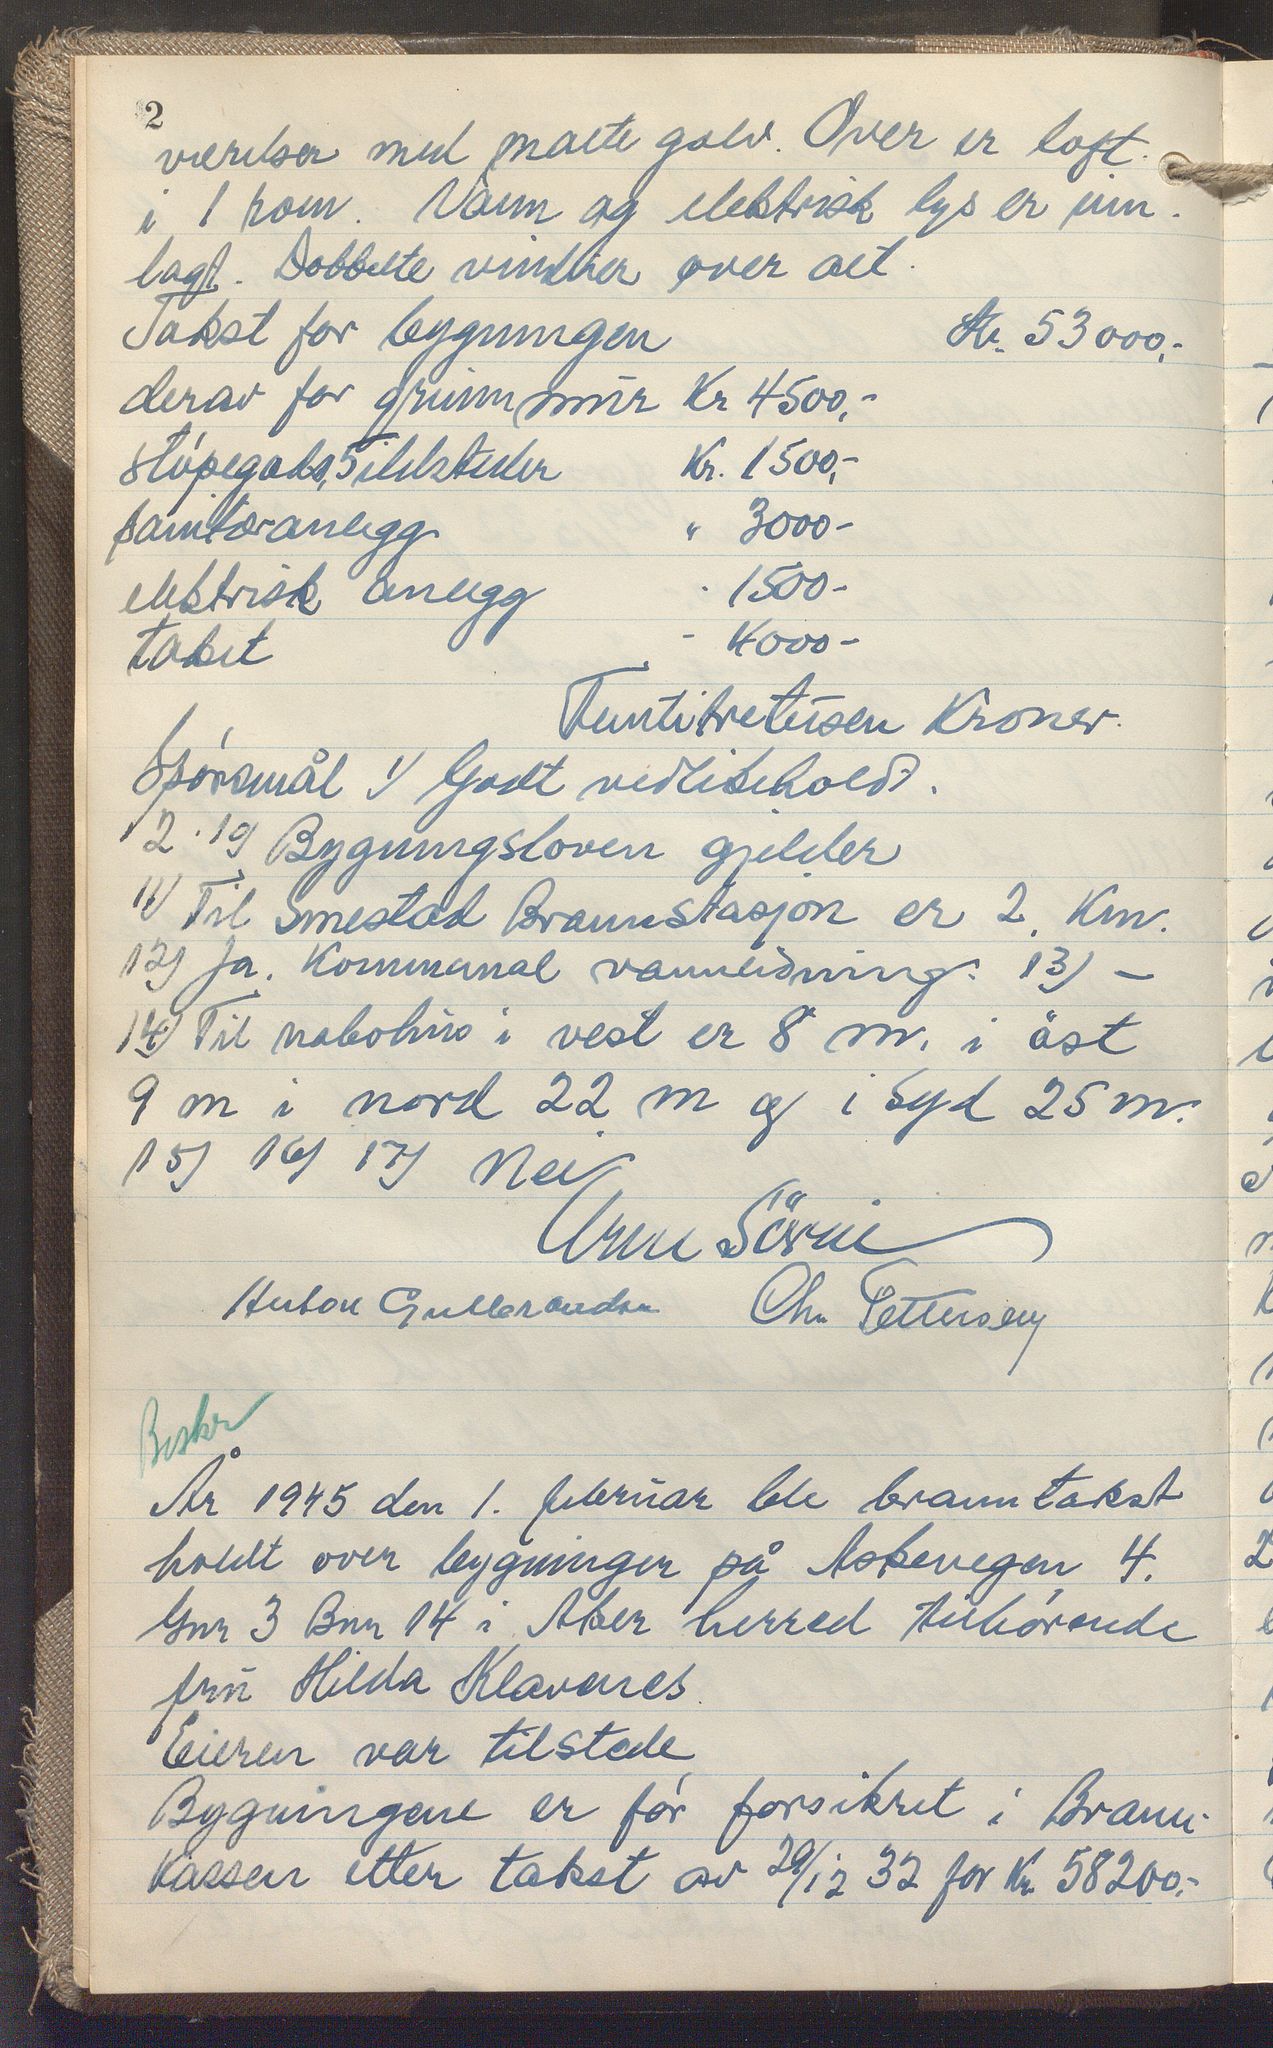 2
værelser med malte golv. Over er loft
i 1 rom. Vann og elektrisk lys er inn-
lagt. Dobbelte vinduer over alt.
Takst for bygningen Kr. 53000,-
derav for grunnmur Kr 4500,-
støpegods, 5 ildsteder Kr. 1500,-
sanitæranlegg " 3000-
elektrisk anlegg - 1500-
taket - 4000-
Femtitretusen Kroner.
Spørsmål 1/ Godt vedlikeholdt.
2-10/ Bygningsloven gjelder
11/ Til Smestad Brannstasjon er 2 Km.
12/ Ja. Kommunal vannledning. 13/ -
14/ Til nabohus i vest er 8 m. i øst
9 m i nord 22 m og i syd 25 m.
15/ 16/ 17/ Nei
Arne
Gulbrandsen Chr. Pettersen
Beskr
År 1945 den 1. februar ble branntakst
holdt over bygninger på Askevegen 4.
Gnr 3 Bnr 14 i Aker herred tilhørende
fru Hilda Klavenes.
Eieren var tilstede
Bygningene er før forsikret i Brann-
kassen etter takst av 29/12 32 for Kr. 58200,-